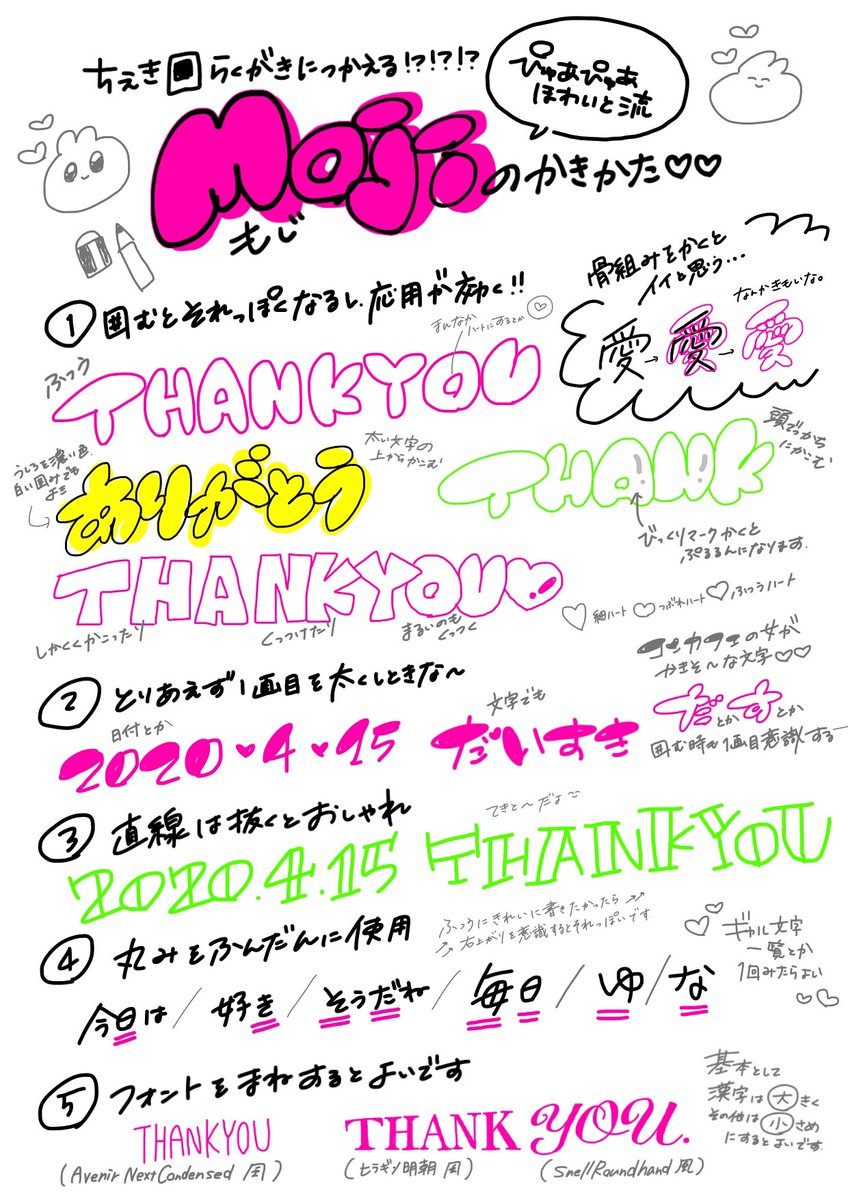 ちぇき らくがきにつかえる!?!?!?
ぴゅあぴゅあ
ほわいと流
Mojiのかきかた♡♡
もじ
① 囲むとそれっぽくなるし、応用が効く!!
骨組みをかくと
イイと思う…
なんかきもいな。
愛→愛→愛
まんなか
ハートにするとか
ふつう
THANKYOU
うしろを濃い色、
白い囲みでも
よき
ありがとう
太い文字の
上からかこむ
THANK
頭でっかち
にかこむ
びっくりマークかくと
ぷるるんになります。
THANKYOU♡
しかくくかこったり
くっつけたり
まるいのも
くっつく
♡細ハート ♡つぶれハート ♡ふつうハート
② とりあえず1画目を太くしときな~
日付とか
2020♥4♥15
文字でも
だいすき
コンカフェの女が
かきそ~な文字♡♡
だとかすとか
囲む時も1画目意識するー
③ 直線は抜くとおしゃれ
てきと~だよ
2020.4.15 THANKYOU
④ 丸みをふんだんに使用
ふつうにきれいに書きたかったら↗↗
↗右上がりを意識するとそれっぽいです
ギャル文字
一覧とか
1回みたらよい
今日は/好き/そうだね/毎日/ゆ/な
⑤ フォントをまねするとよいです
THANKYOU
(Avenir Next Condensed 風)
THANK YOU.
(ヒラギノ明朝 風)
(Snell Roundhand 風)
基本として
漢字は大きく
その他は小さめ
にするとよいです。